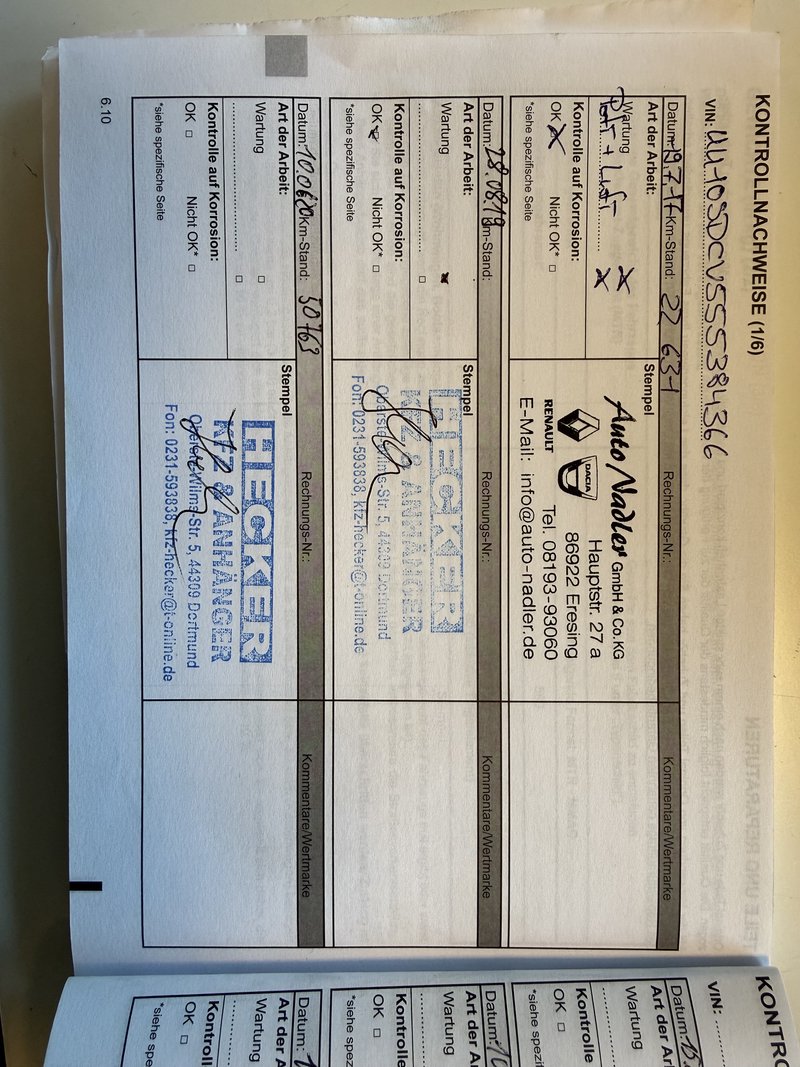 KONTROLLNACHWEISE (1/6)
VIN: UU10SDCV555384366
Datum: 19.7.17 Km-Stand: 22 631
Rechnungs-Nr.:
Kommentare/Wertmarke
Art der Arbeit:
Wartung X
+ Luft X
Kontrolle auf Korrosion:
OK X Nicht OK* □
*siehe spezifische Seite
Stempel
Auto Nadler GmbH & Co. KG
Hauptstr. 27 a
86922 Eresing
Tel. 08193-93060
RENAULT
DACIA
E-Mail: info@auto-nadler.de
Datum: 28.08.19 Km-Stand:
Rechnungs-Nr.:
Kommentare/Wertmarke
Art der Arbeit:
Wartung x
.............................. □
Kontrolle auf Korrosion:
OK x Nicht OK* □
*siehe spezifische Seite
Stempel
HECKER
KFZ & ANHÄNGER
Oberste-Wilms-Str. 5, 44309 Dortmund
Fon: 0231-593838, kfz-hecker@t-online.de
Datum: 10.06.20 Km-Stand: 50763
Rechnungs-Nr.:
Kommentare/Wertmarke
Art der Arbeit:
Wartung □
.............................. □
Kontrolle auf Korrosion:
OK □ Nicht OK* □
*siehe spezifische Seite
Stempel
HECKER
KFZ & ANHÄNGER
Oberste-Wilms-Str. 5, 44309 Dortmund
Fon: 0231-593838, kfz-hecker@t-online.de
6.10
KONTRO
VIN:
Datum:
Art der Ar
Wartung
Kontrolle
OK □
*siehe spezi
Datum:
Art der A
Wartung
Kontrolle
OK □
*siehe spez
Datum:
Art der A
Wartung
Kontroll
OK □
*siehe spe